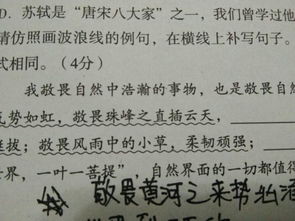 D. 苏轼是“唐宋八大家”之一，我们曾学过他
请仿照画波浪线的例句，在横线上补写句子。
式相同。（4分）
我敬畏自然中浩瀚的事物，也是敬畏自然
气势如虹，敬畏珠峰之直插云天，
挺拔；敬畏风雨中的小草，柔韧顽强；
世界，一叶一菩提”，自然界面的一切都值得
敬畏黄河之来势汹